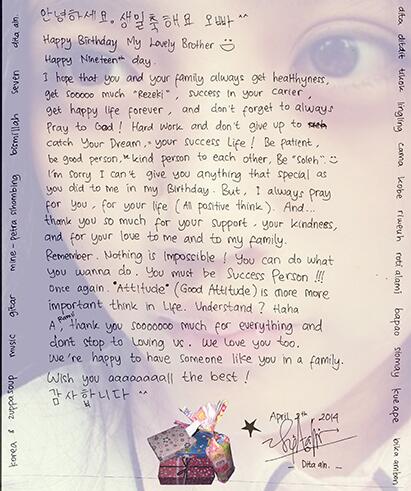 안녕하세요. 생일축해요 오빠 ^^
Happy Birthday My Lovely Brother
Happy Nineteenth day.
I hope that you and your family always get healthyness,
get sooooo much "Rezeki", success in your carier,
get happy life forever, and don't forget to always
Pray to God! Hard work and don't give up to
catch Your Dream, your success Life! Be patient,
be good person, kind person to each other, Be "Soleh".
I'm sorry I can't give you anything that special as
you did to me in my Birthday. But, I always pray
for you, for your life (All positive think). And...
thank you so much for your support, your kindness,
and for your love to me and to my family.
Remember. Nothing is Impossible! You can do what
you wanna do. You must be Success Person!!!
Once again. "Attitude" (Good Attitude) is more more
important think in Life. Understand? Haha
A, Thank you sooooooo much for everything and
dont stop to loving us. We love you too.
We're happy to have someone like you in a family.
Wish you aaaaaaaall the best!
감사합니다 ^^
April, 2014
_ Dita ain. _
korea & zuppa soup music gitar mine - petra sihombing bismillah seven dita ain.
dita ditdit tikok lingling cama kobe riweuh roti alami bapao siomay kue ape bika ambon